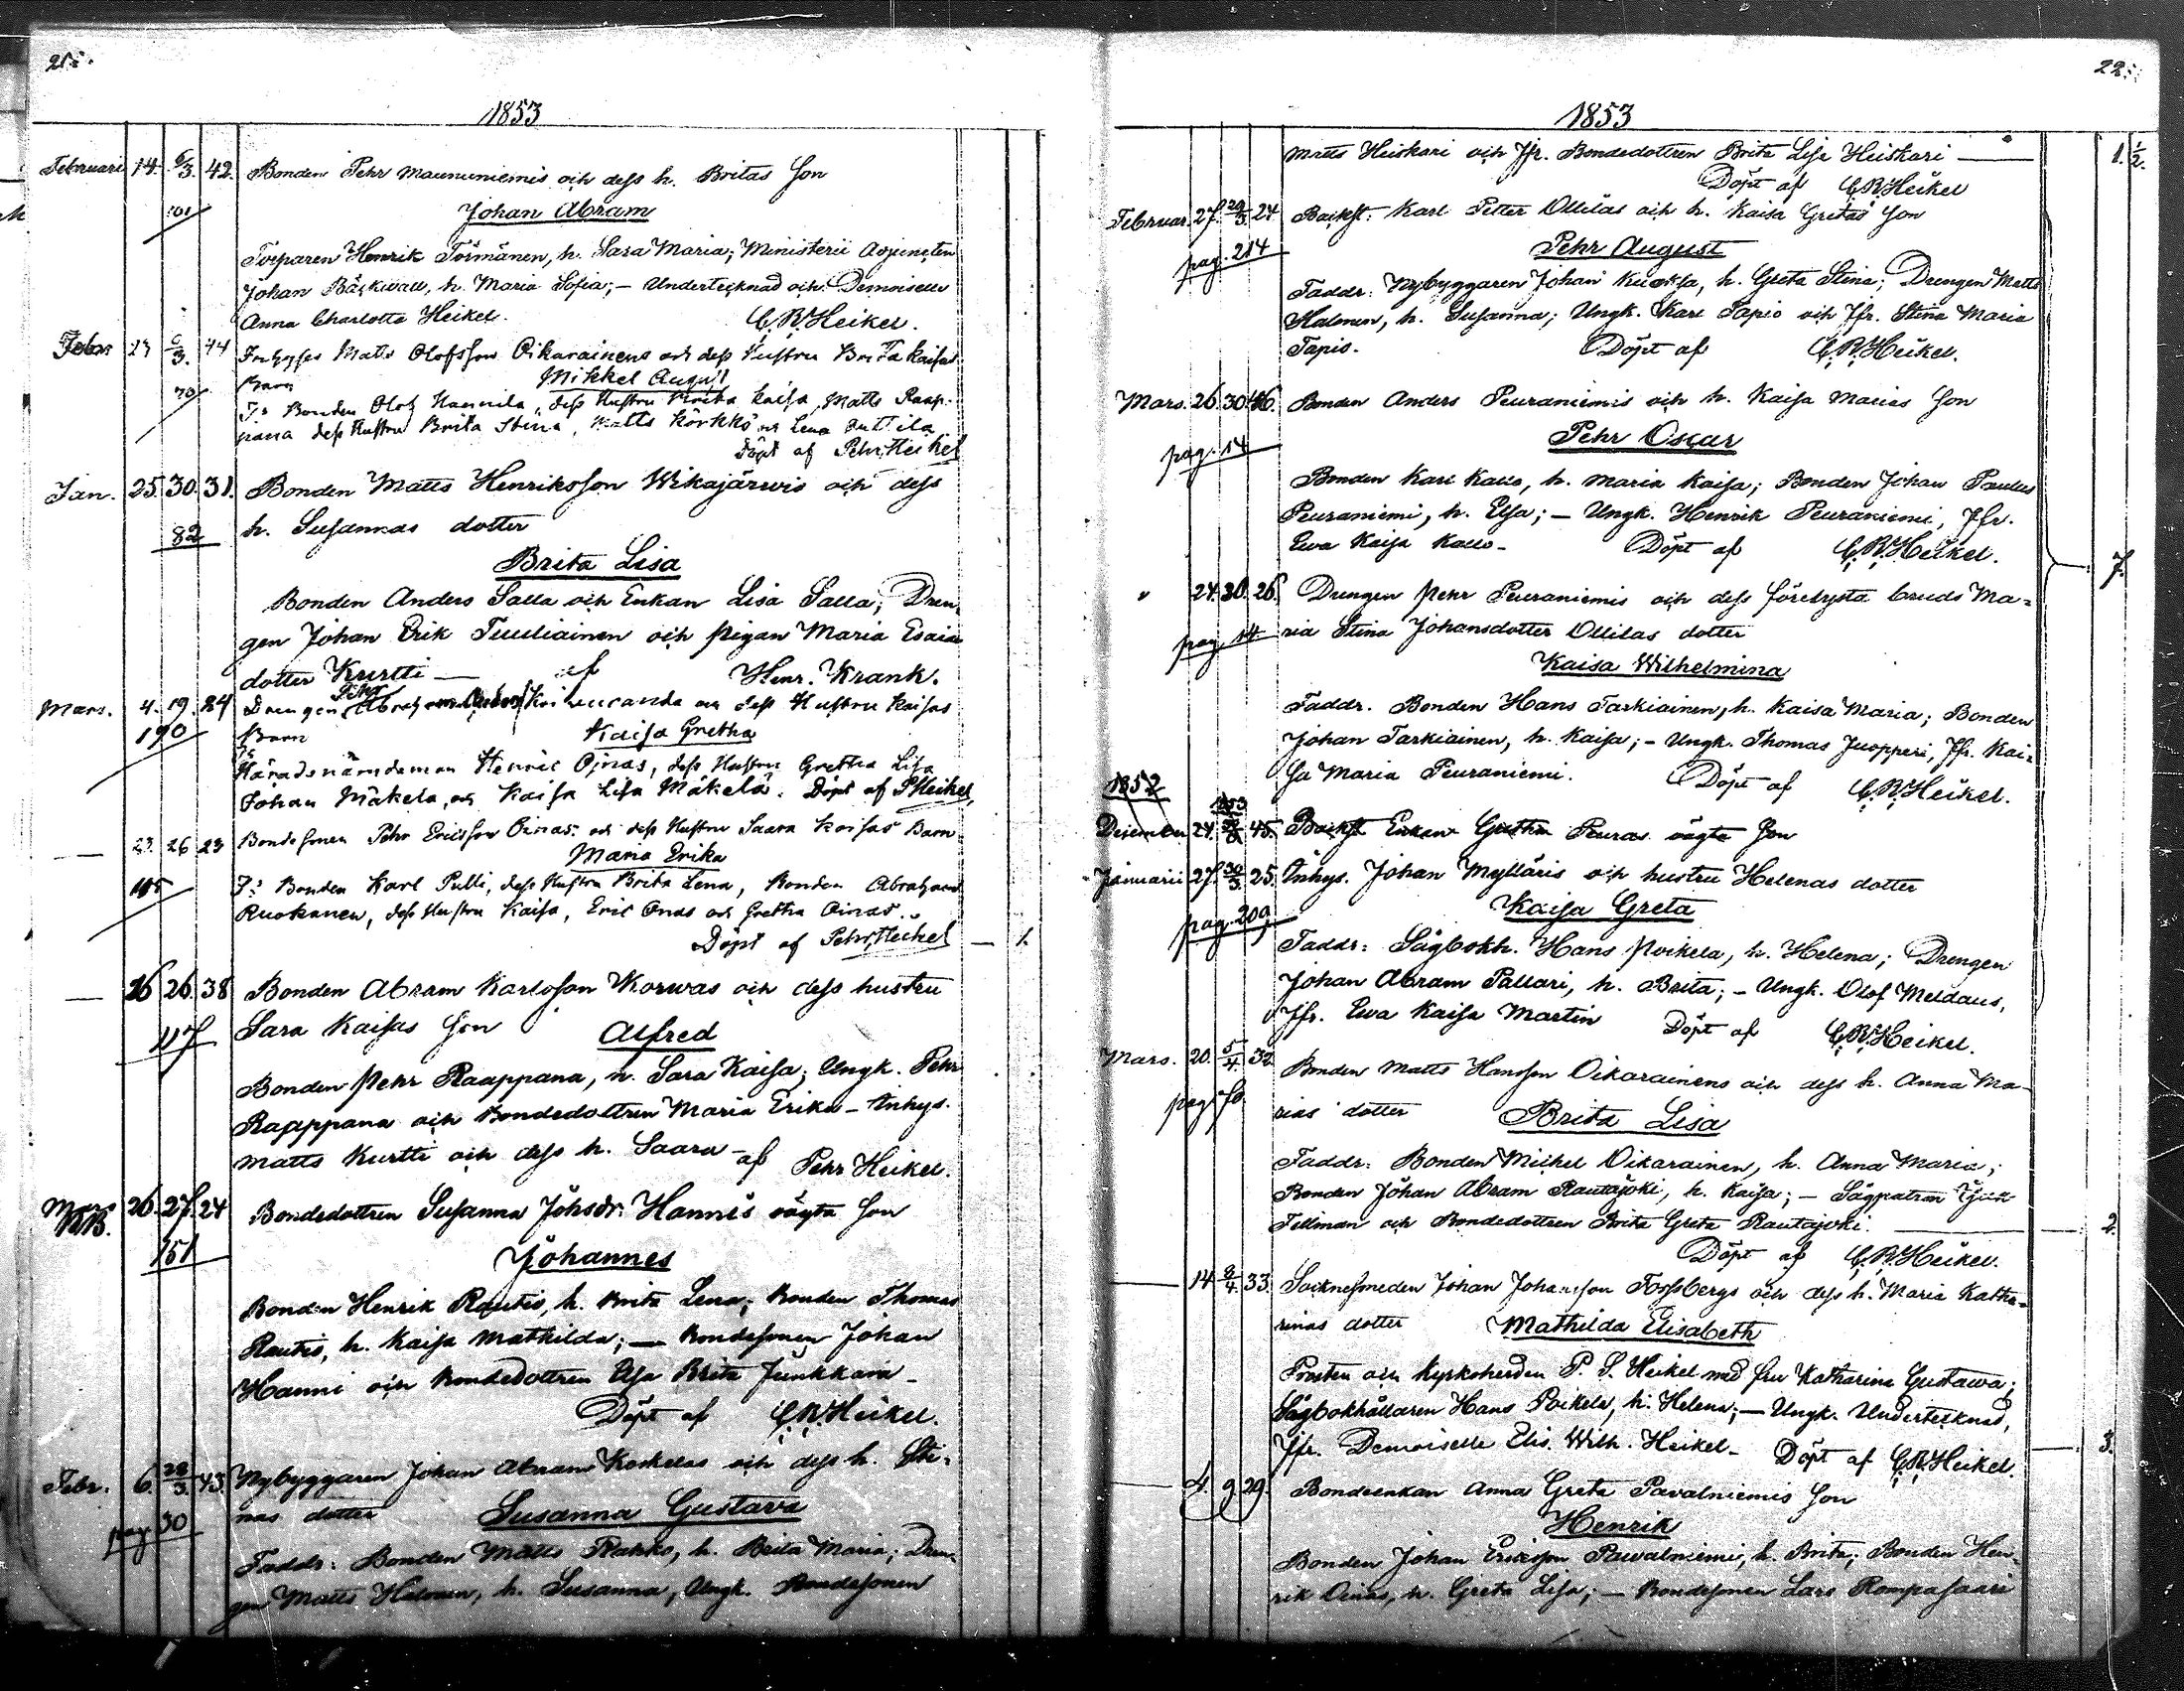 21.
1853
Februari 14. 6/3. 42. Bonden Pehr Maununiemis och dess h. Britas Son
101
Johan Abram
Torparen Henrik Törmänen, h. Sara Maria; Ministerii Adjuncten
Johan Bäckwall, h. Maria Sofia; – Undertecknad och Demoiselle
Anna Charlotta Heikel. C.R. Heikel.
Febr 23 6/3. 44 Inhyses Matts Olofsson Oikarainens och dess Hustru Brita Kaisas
70 Barn Mikkel August
Bonden Olof Hannila, dess Hustru Brita Kaisa, Matts Raap-
pana dess Hustru Brita Stina, Matts Körkkö och Lena
Döpt af Pehr Heikel
Jan. 25. 30. 31. Bonden Matts Henriksson Wikajärwis och dess
82 h. Susannas dotter
Brita Lisa
Bonden Anders Salla och Enkan Lisa Salla; Dren-
gen Johan Erik Tuuliainen och pigan Maria Esaia
dotter Kurtti — af Henr. Krank.
Mars. 4. 19. 24 Drengen och dess Hustru Kaisas
190 Barn Kaisa Gretha
Häradsnämdeman Henric Ojnas, dess Hustru Gretha Lisa
Johan Mäkelä, och Kaisa Lisa Mäkelä. Döpt af P Heikel,
— 23. 26 23 Bondesonen Pehr Ericsson Oinas: och dess Hustru Saara Kaisas Barn
Maria Erika
Bonden Karl Pulli, dess Hustru Brita Lena, Bonden Abraham
Ruokanen, dess Hustru Kaisa, Eric Onas och Gretha Oinas.
Döpt af Pehr Heikel — 1.
— 16 26. 38 Bonden Abram Karlsson Korwas och dess hustru
117 Sara Kaisas Son Alfred
Bonden Pehr Raappana, h. Sara Kaisa; Ungk. Pehr
Raappana och Bondedottren Maria Erika – Inhys.
Matts Kurtti och dess h. Saara – af Pehr Heikel.
Mars NB. 26. 27. 24 Bondedottren Susanna Johsdr. Hannis oägta Son
151
Johannes
Bonden Henrik Rautio, h. Brita Lena; Bonden Thomas
Rautio, h. Kaisa Mathilda; — Bondesonen Johan
Hanni och Bondedottren Elsa Brita Junkkari –
Döpt af C.R. Heikel.
Febr. 6. 28/3. 43. Nybyggaren Johan Abram Koskelas och dess h. Sti-
pag 30 nas dotter Susanna Gustava
Faddr: Bonden Matts Rahko, h. Brita Maria; Dren-
gen Matts Halonen, h. Susanna, Ungk. Bondesonen
22.
1853
Matts Heiskari och Jfr. Bondedottren Brita Lisa Heiskari — 1. 1/2.
Döpt af C.R. Heikel
Februar. 27. 29/3 24 Backst: Karl Petter Ollilas och h. Kaisa Gretas Son
pag. 214 Pehr August
Faddr: Nybyggaren Johan Kuoksa, h. Greta Stina; Drengen Matts
Halonen, h. Susanna; Ungk. Karl Tapio och Jfr. Stina Maria
Tapio. Döpt af C.R. Heikel.
Mars. 26. 30. 46. Bonden Anders Peuraniemis och h. Kaisa Marias Son
pag. 14 Pehr Oscar
Bonden Karl Kallo, h. Maria Kaisa; Bonden Johan Paulus
Peuraniemi, h. Elsa; – Ungk. Henrik Peuraniemi, Jfr.
Ewa Kaisa Kallo – Döpt af C.R. Heikel. 7.
" 24. 30. 26. Drengen Pehr Peuraniemis och dess förelysta bruds Ma-
pag. 14 ria Stina Johansdotter Ollilas dotter
Kaisa Wilhelmina
Faddr. Bonden Hans Tarkiainen, h. Kaisa Maria; Bonden
Johan Tarkiainen, h. Kaisa; – Ungk. Thomas Juopperi, Jfr. Kai-
sa Maria Peuraniemi. Döpt af C.R. Heikel.
1852
December 24. 45. Backst Enkan Gretha Peuras oägta Son
Januarii 27. 30/3. 25. Inhys. Johan Mylläris och hustru Helenas dotter
pag. 209 Kaisa Greta
Faddr: Sågbokh. Hans Poikela, h. Helena; Drengen
Johan Abram Pallari, h. Brita; – Ungk. Olof Meldaus,
Jfr. Ewa Kaisa Martin Döpt af C.R. Heikel.
Mars. 20. 5/4. 32. Bonden Matts Hansson Oikarainens och dess h. Anna Ma-
pag. 70. rias dotter Brita Lisa
Faddr: Bonden Michel Oikarainen, h. Anna Maria;
Bonden Johan Abram Rautajoki, h. Kaisa; – Sågpatron
Fellman och Bondedottren Brita Greta Rautajoki. — 2.
Döpt af C.R. Heikel.
— 14 8/4. 33. Socknesmeden Johan Johansson Forssbergs och dess h. Maria Katha-
rinas dotter Mathilda Elisabeth
Prosten och Kyrkoherden P. S. Heikel med fru Katharina Gustawa;
Sågbokhållaren Hans Poikela, h. Helena; — Ungk. Undertecknad,
Jfr. Demoiselle Elis. Wilh. Heikel – Döpt af C.R. Heikel. — 3.
— 4. 9. 29. Bondeenkan Anna Greta Pavalniemis Son
Henrik
Bonden Johan Ericsson Pawalniemi, h. Brita; Bonden Hen-
rik Oinas, h. Greta Lisa; — Bondesonen Lars Rompasaari